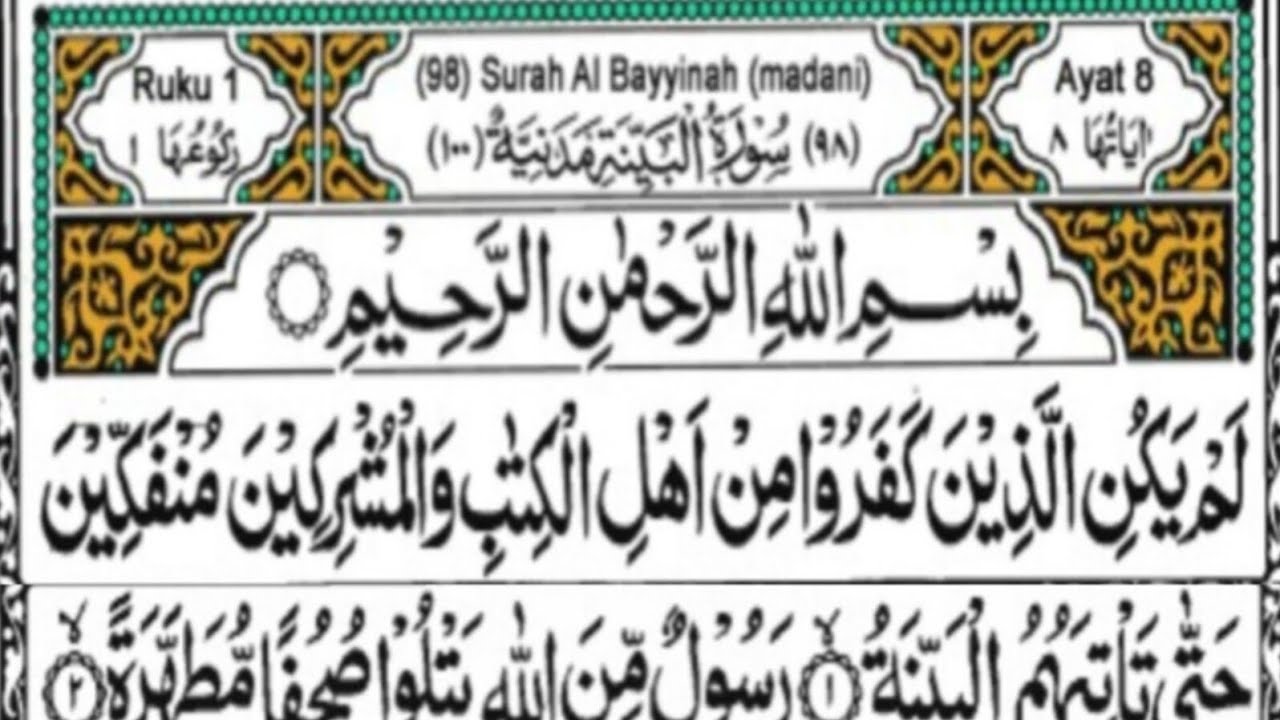 Ruku 1
رُكُوْعُهَا ١
(98) Surah Al Bayyinah (madani)
(٩٨) سُوْرَةُ الْبَيِّنَةِ مَدَنِيَّةٌ (١٠٠)
Ayat 8
اٰيَاتُهَا ٨
بِسْمِ اللّٰهِ الرَّحْمٰنِ الرَّحِيْمِ
لَمْ يَكُنِ الَّذِيْنَ كَفَرُوْا مِنْ اَهْلِ الْكِتٰبِ وَالْمُشْرِكِيْنَ مُنْفَكِّيْنَ
حَتّٰى تَاْتِيَهُمُ الْبَيِّنَةُ ۙ﴿١﴾ رَسُوْلٌ مِّنَ اللّٰهِ يَتْلُوْا صُحُفًا مُّطَهَّرَةً ۙ﴿٢﴾